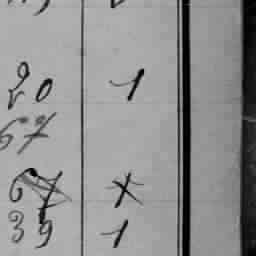 20 1
67
67 x
39 1